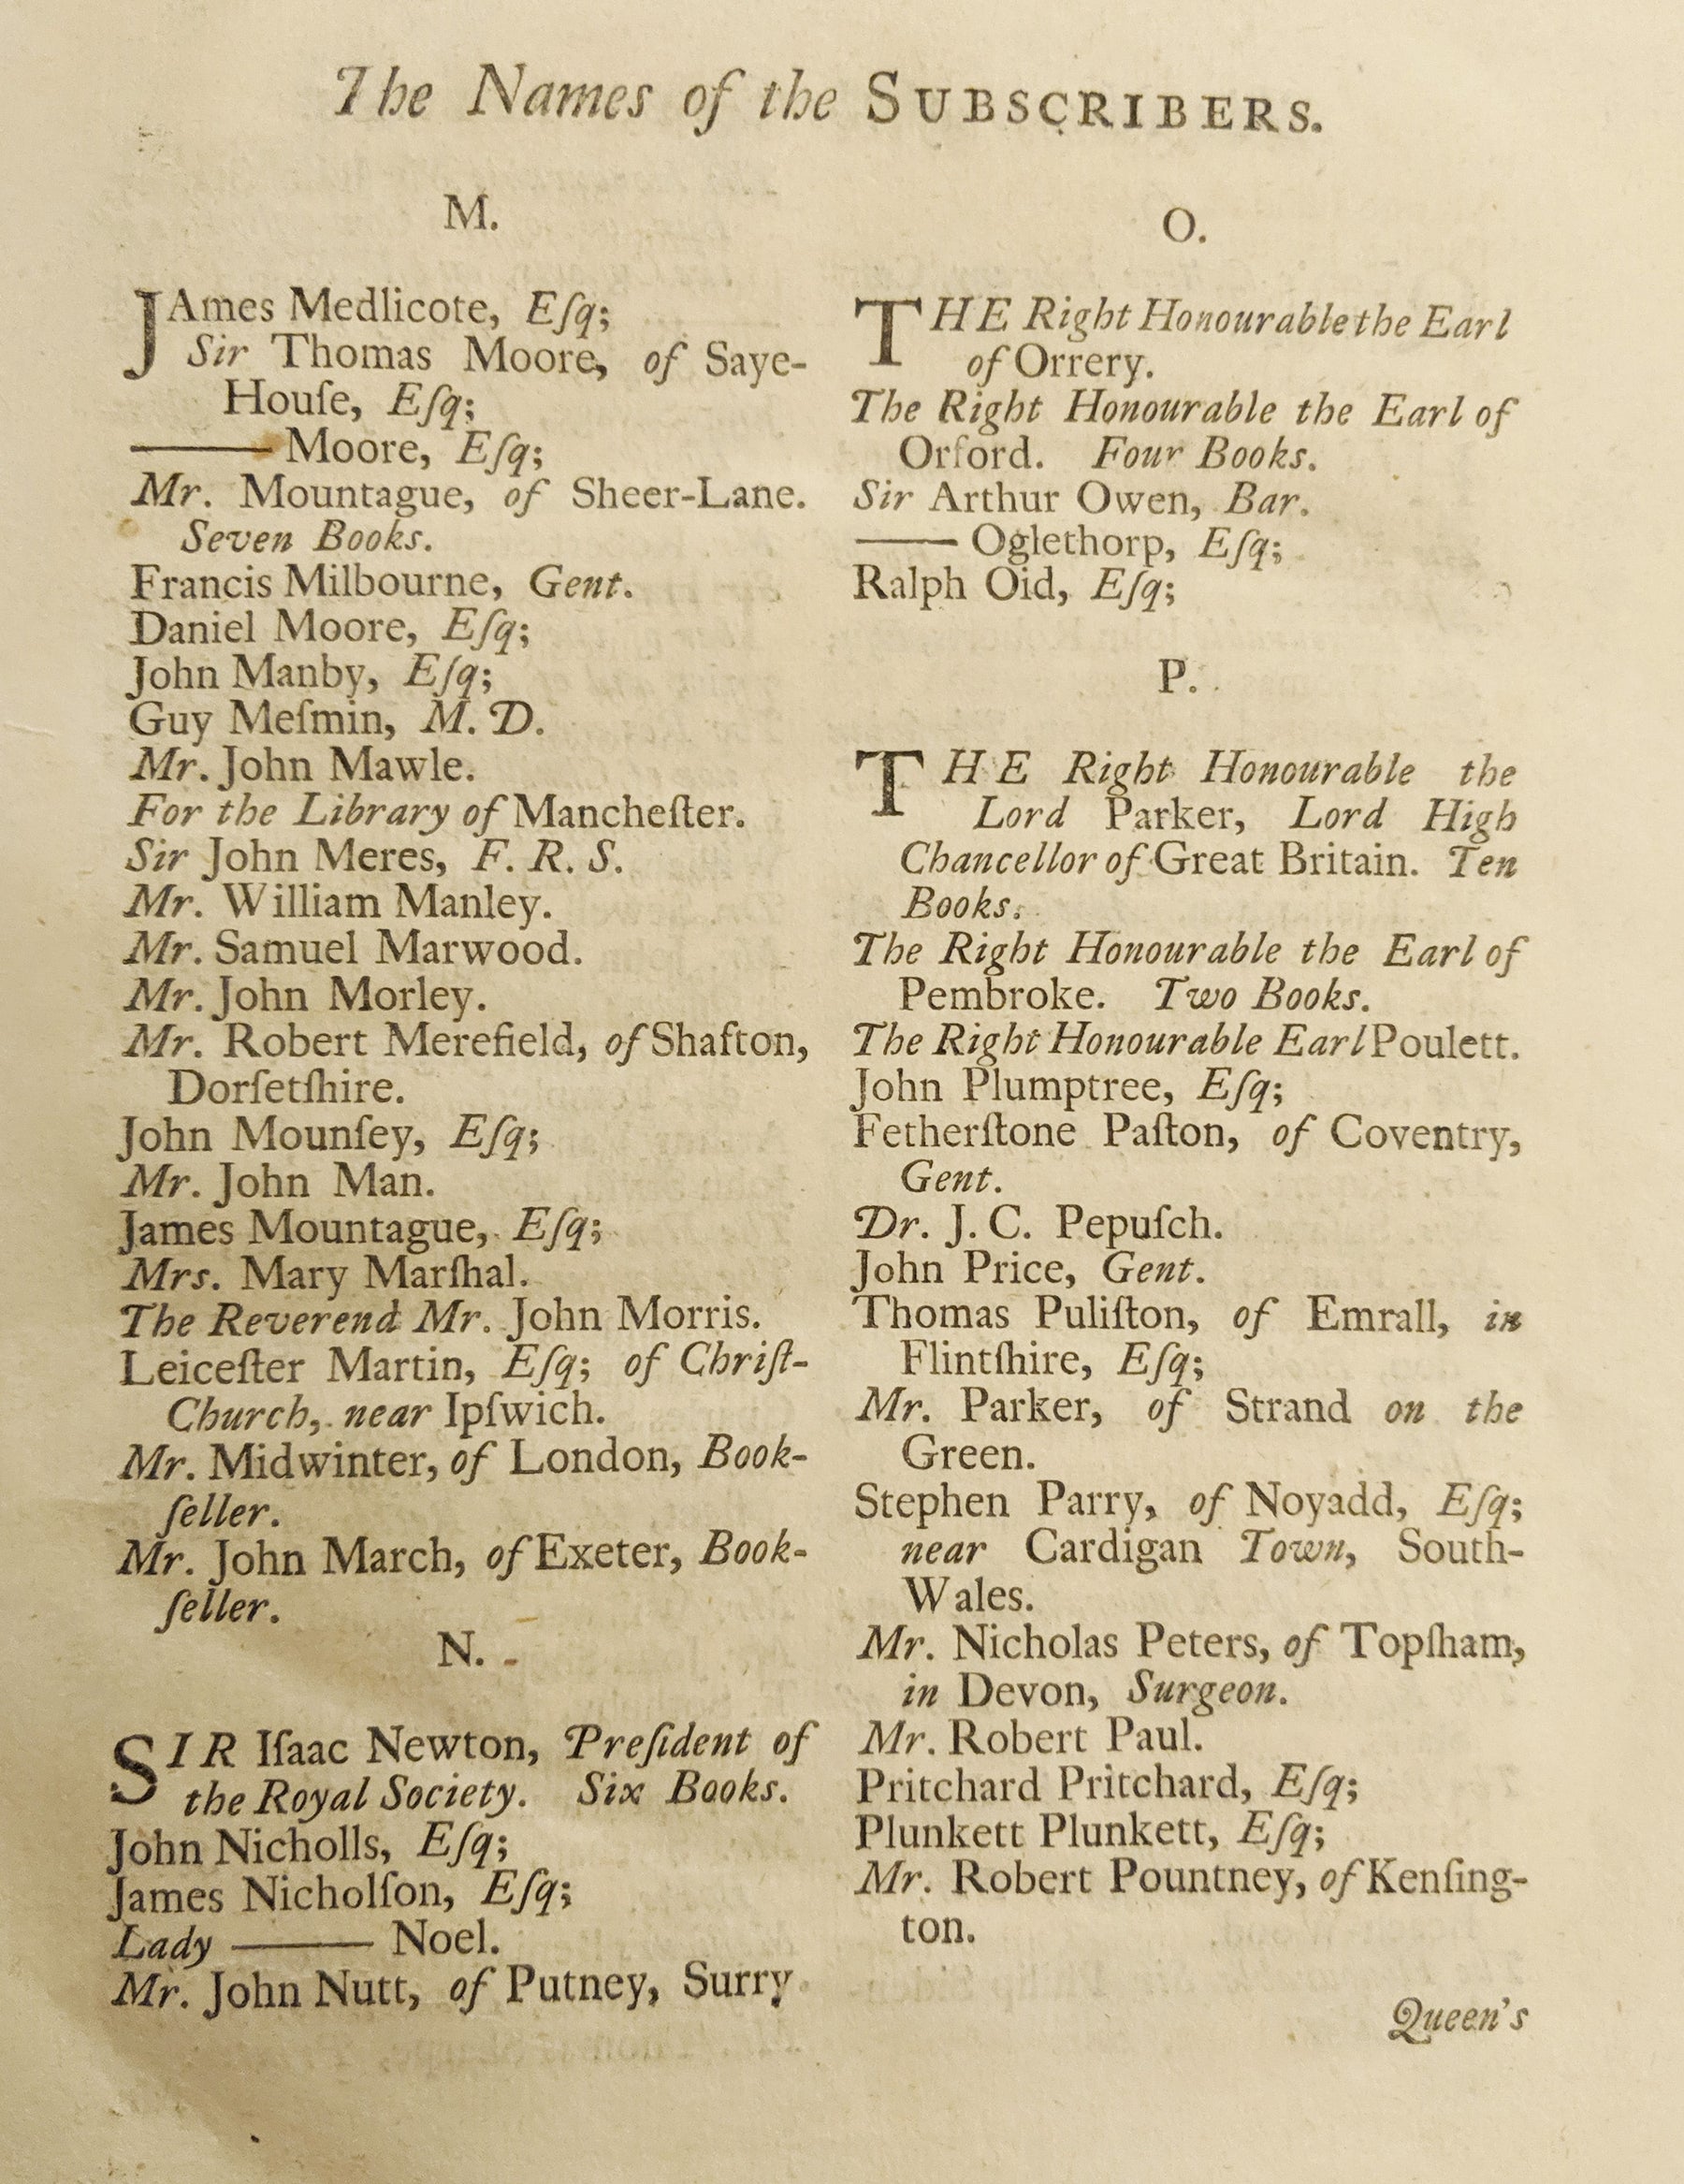 The Names of the SUBSCRIBERS.
M.
JAmes Medlicote, Eſq;
Sir Thomas Moore, of Saye-
Houſe, Eſq;
——— Moore, Eſq;
Mr. Mountague, of Sheer-Lane.
Seven Books.
Francis Milbourne, Gent.
Daniel Moore, Eſq;
John Manby, Eſq;
Guy Meſmin, M. D.
Mr. John Mawle.
For the Library of Mancheſter.
Sir John Meres, F. R. S.
Mr. William Manley.
Mr. Samuel Marwood.
Mr. John Morley.
Mr. Robert Merefield, of Shafton,
Dorſetſhire.
John Mounſey, Eſq;
Mr. John Man.
James Mountague, Eſq;
Mrs. Mary Marſhal.
The Reverend Mr. John Morris.
Leiceſter Martin, Eſq; of Chriſt-
Church, near Ipſwich.
Mr. Midwinter, of London, Book-
ſeller.
Mr. John March, of Exeter, Book-
ſeller.
N.
SIR Iſaac Newton, Preſident of
the Royal Society. Six Books.
John Nicholls, Eſq;
James Nicholſon, Eſq;
Lady ——— Noel.
Mr. John Nutt, of Putney, Surry
O.
THE Right Honourable the Earl
of Orrery.
The Right Honourable the Earl of
Orford. Four Books.
Sir Arthur Owen, Bar.
—— Oglethorp, Eſq;
Ralph Oid, Eſq;
P.
THE Right Honourable the
Lord Parker, Lord High
Chancellor of Great Britain. Ten
Books.
The Right Honourable the Earl of
Pembroke. Two Books.
The Right Honourable Earl Poulett.
John Plumptree, Eſq;
Fetherſtone Paſton, of Coventry,
Gent.
Dr. J. C. Pepuſch.
John Price, Gent.
Thomas Puliſton, of Emrall, in
Flintſhire, Eſq;
Mr. Parker, of Strand on the
Green.
Stephen Parry, of Noyadd, Eſq;
near Cardigan Town, South-
Wales.
Mr. Nicholas Peters, of Topſham,
in Devon, Surgeon.
Mr. Robert Paul.
Pritchard Pritchard, Eſq;
Plunkett Plunkett, Eſq;
Mr. Robert Pountney, of Kenſing-
ton.
Queen's